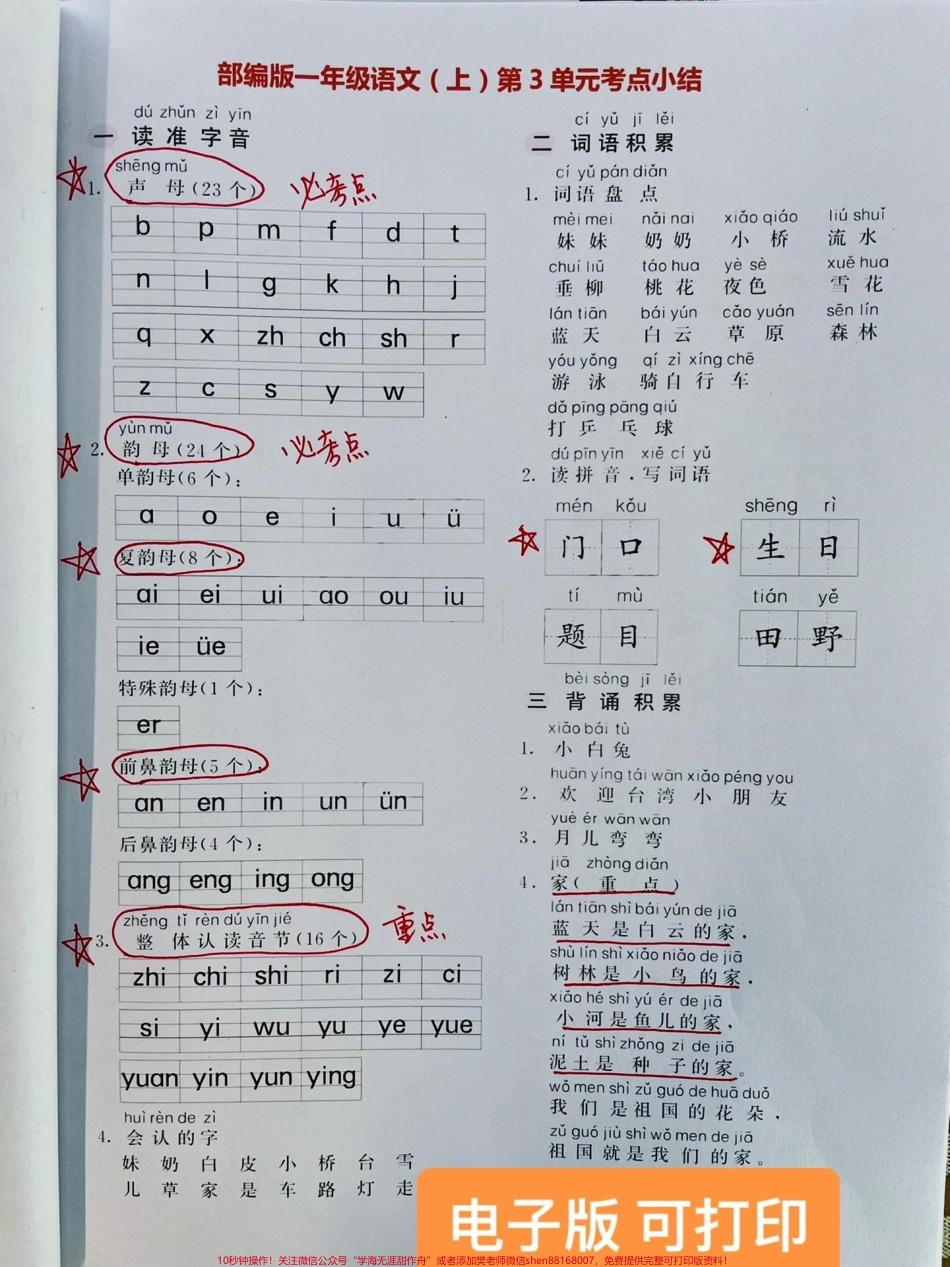 部编版一年级语文(上)第3单元考点小结
dú zhǔn zì yīn
一 读准字音
shēng mǔ
1. 声母(23个) 必考点
b p m f d t
n l g k h j
q x zh ch sh r
z c s y w
yùn mǔ
2. 韵母(24个) 必考点
单韵母(6个):
a o e i u ü
复韵母(8个):
ai ei ui ao ou iu
ie üe
特殊韵母(1个):
er
前鼻韵母(5个):
an en in un ün
后鼻韵母(4个):
ang eng ing ong
zhěng tǐ rèn dú yīn jié
3. 整体认读音节(16个) 重点
zhi chi shi ri zi ci
si yi wu yu ye yue
yuan yin yun ying
huì rèn de zì
4. 会认的字
妹 奶 白 皮 小 桥 台 雪
儿 草 家 是 车 路 灯 走
cí yǔ jī lěi
二 词语积累
cí yǔ pán diǎn
1. 词语盘点
mèi mei nǎi nai xiǎo qiáo liú shuǐ
妹妹 奶奶 小桥 流水
chuí liǔ táo hua yè sè xuě hua
垂柳 桃花 夜色 雪花
lán tiān bái yún cǎo yuán sēn lín
蓝天 白云 草原 森林
yóu yǒng qí zì xíng chē
游泳 骑自行车
dǎ pīng pāng qiú
打乒乓球
dú pīn yīn xiě cí yǔ
2. 读拼音,写词语
mén kǒu shēng rì
门口 生日
tí mù tián yě
题目 田野
bèi sòng jī lěi
三 背诵积累
xiǎo bái tù
1. 小白兔
huān yíng tái wān xiǎo péng you
2. 欢迎台湾小朋友
yuè ér wān wān
3. 月儿弯弯
jiā zhòng diǎn
4. 家(重点)
lán tiān shì bái yún de jiā
蓝天是白云的家,
shù lín shì xiǎo niǎo de jiā
树林是小鸟的家,
xiǎo hé shì yú ér de jiā
小河是鱼儿的家,
ní tǔ shì zhǒng zi de jiā
泥土是种子的家。
wǒ men shì zǔ guó de huā duǒ
我们是祖国的花朵,
zǔ guó jiù shì wǒ men de jiā
祖国就是我们的家。
电子版 可打印
10秒钟操作!关注微信公众号“学海无涯甜作舟”或者添加樊老师微信shen88168007,免费提供完整可打印版资料!